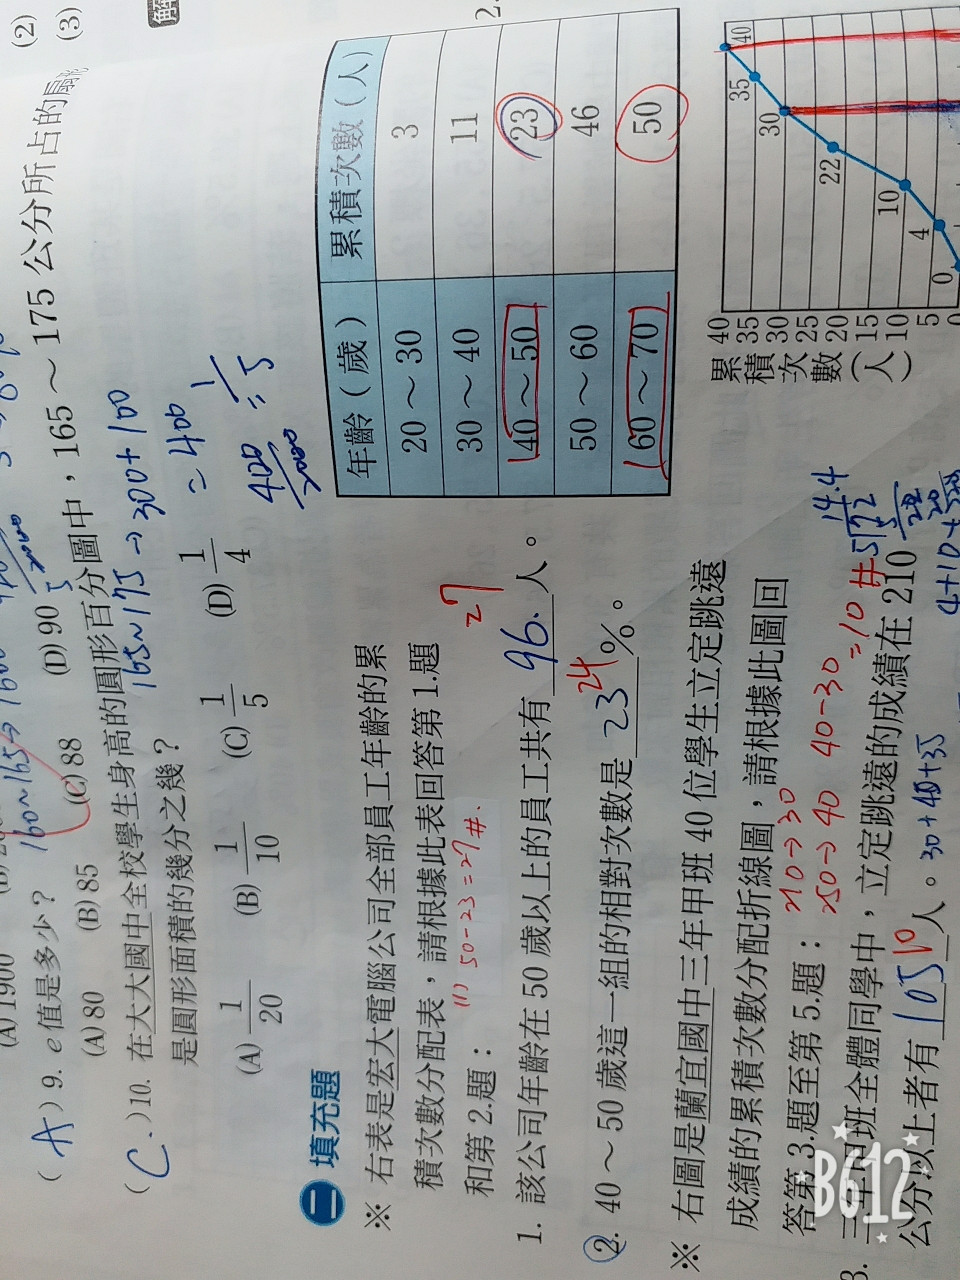 (2)
(3)
(A) 1900
( A ) 9. e值是多少？ 160~165→
(A) 80 (B) 85 (C) 88 (D) 90
( C. ) 10. 在大大國中全校學生身高的圓形百分圖中，165～175公分所占的扇形
165~175→300+100
是圓形面積的幾分之幾？
=400
(A) 1/20 (B) 1/10 (C) 1/5 (D) 1/4
400/2000 = 1/5
二 填充題
※ 右表是宏大電腦公司全部員工年齡的累
積次數分配表，請根據此表回答第1.題
和第2.題：
(1) 50-23=27#.
27
1. 該公司年齡在50歲以上的員工共有 96. 人。
24
2. 40～50歲這一組的相對次數是 23 %。
年齡（歲） 累積次數（人）
20～30 3
30～40 11
40～50 23
50～60 46
60～70 50
2.
※ 右圖是蘭宜國中三年甲班40位學生立定跳遠
成績的累積次數分配折線圖，請根據此圖回
答第3.題至第5.題：
210→30
250→40 40-30
=10#
3. 三年甲班全體同學中，立定跳遠的成績在210
公分以上者有 105 10 人。
30+40+35
14.4
5
72
累積次數（人）
40
35
30
25
20
15
10
5
0
0
4
10
22
30
35
40
B612